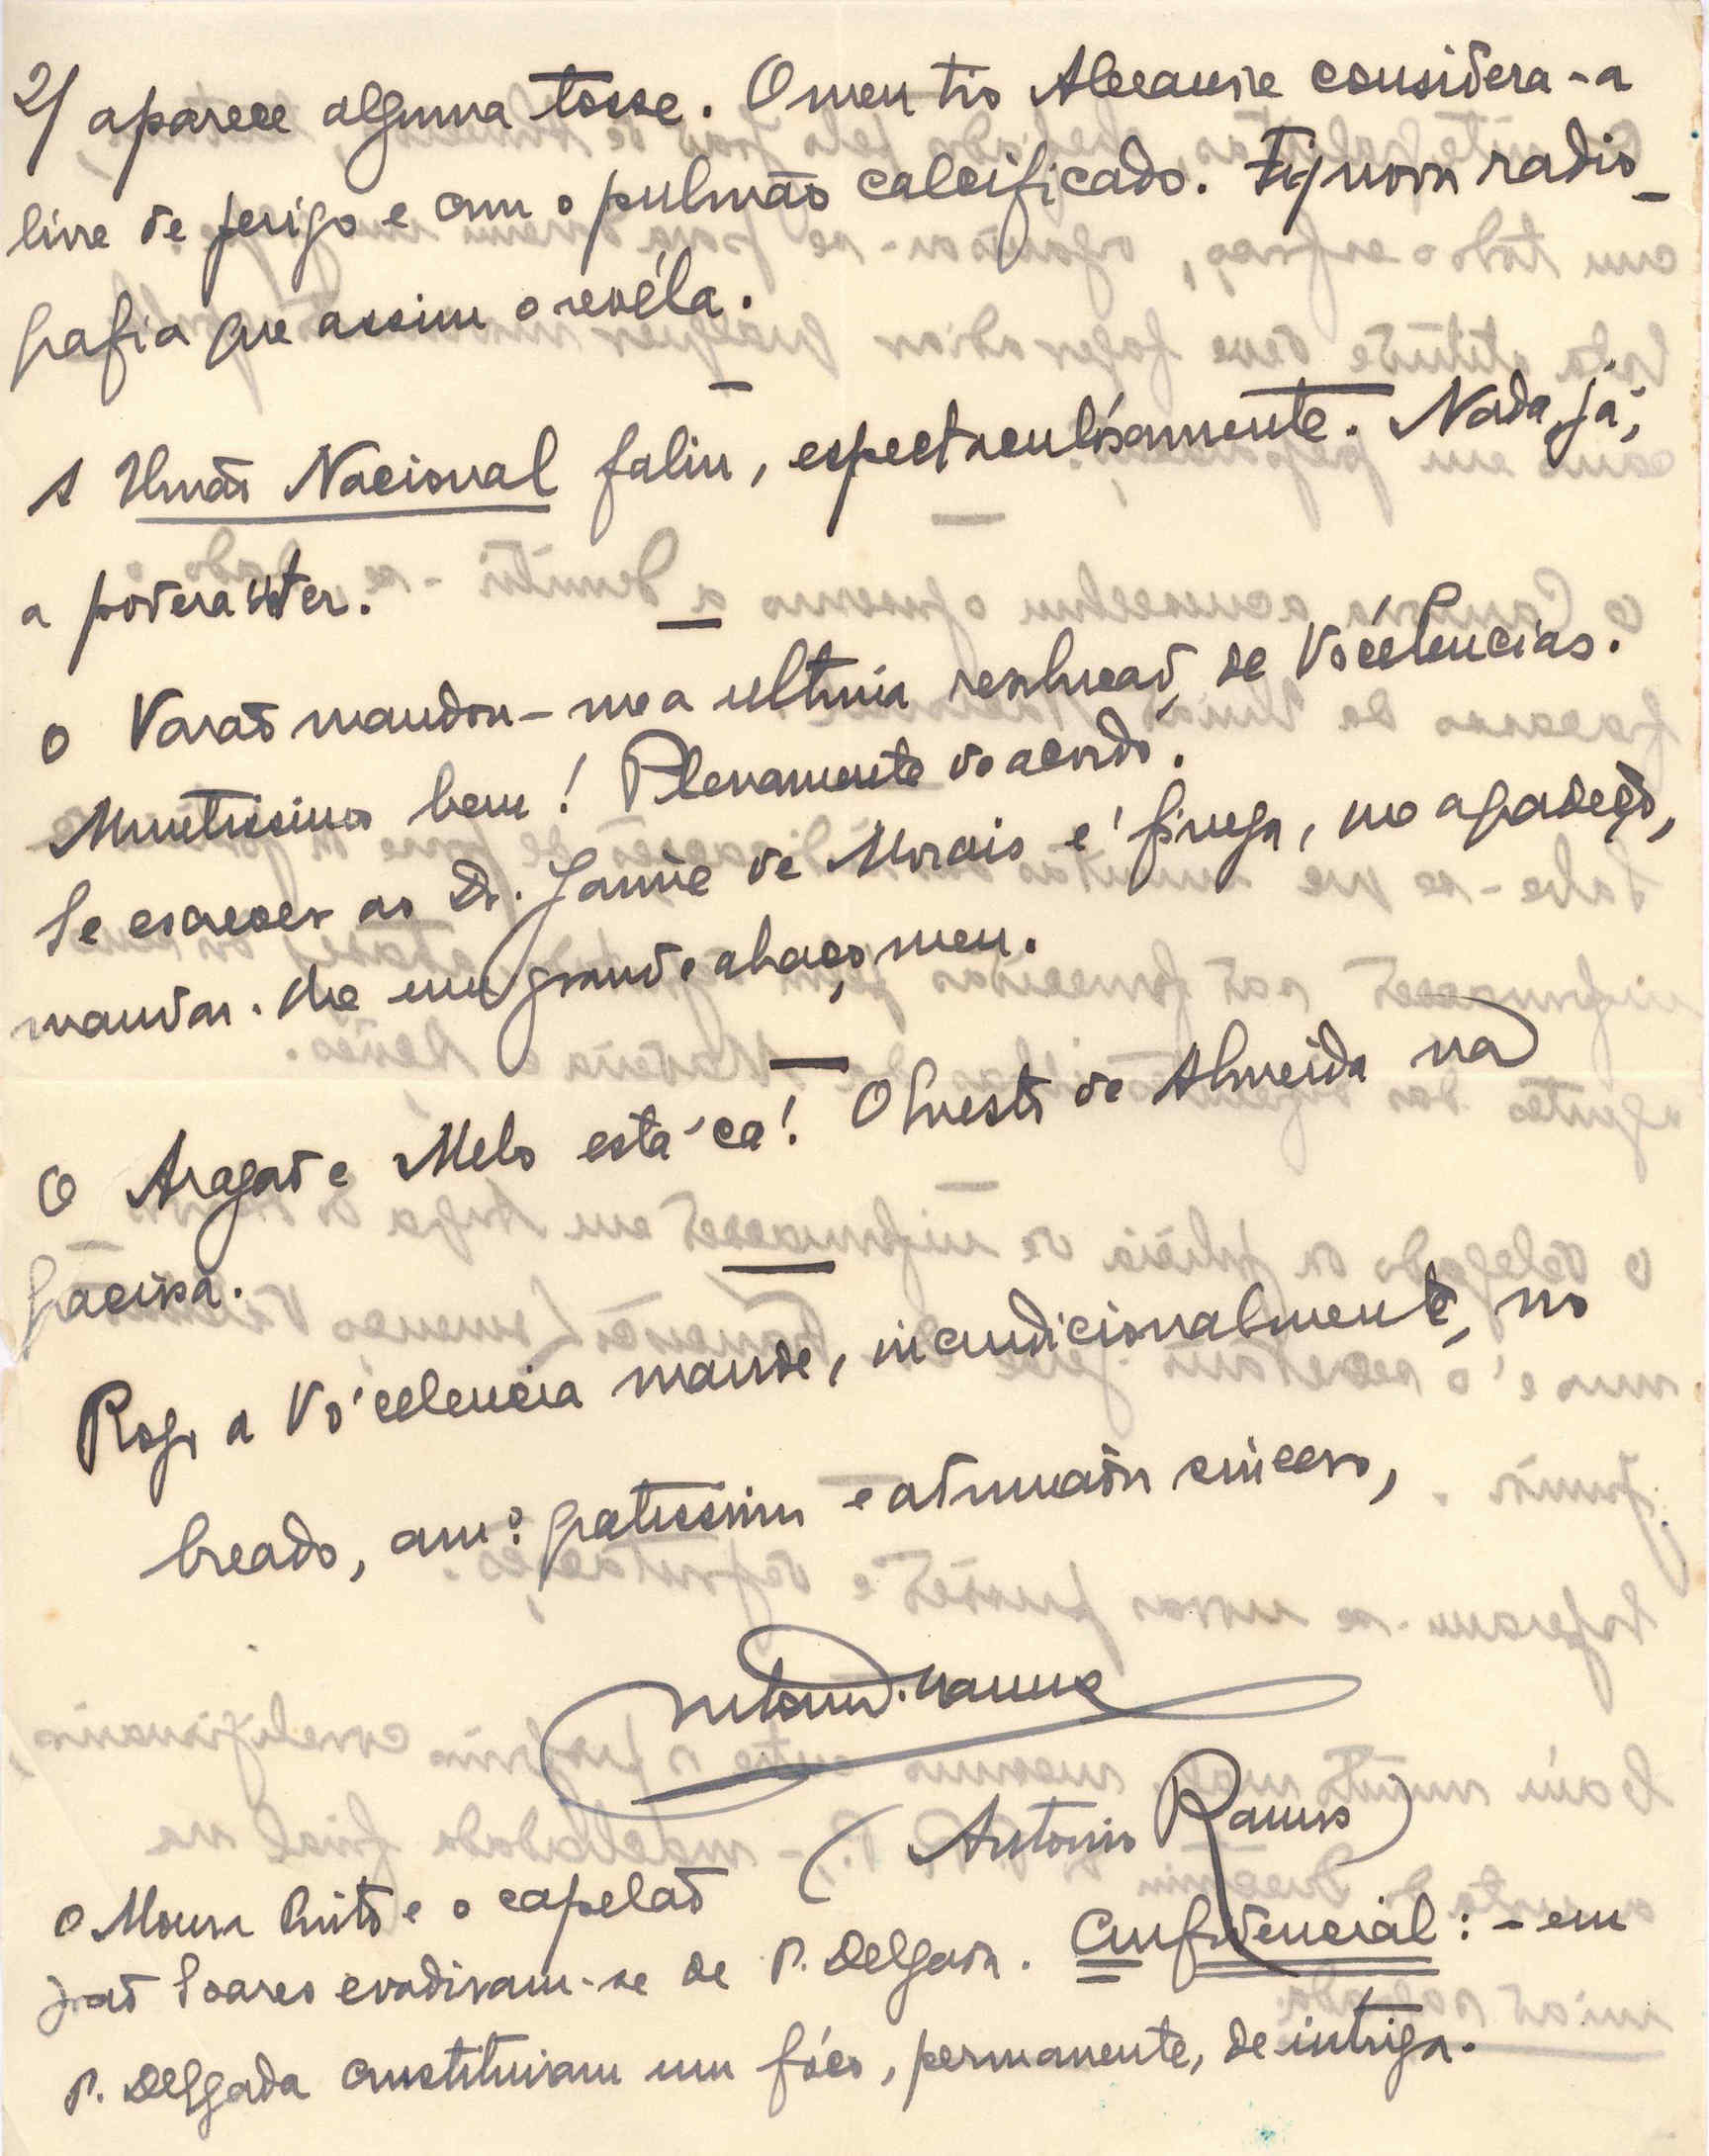 2/ aparece alguma tosse. O meu tio Alexandre considera-a
livre de perigo e com o pulmão calcificado. Fiz nova radio-
grafia que assim o revéla.
A União Nacional faliu, espectaculósamente. Nada, já,
a poderá suster.
O Varaõ mandou-me a ultima resolucaõ, de Vócelencias.
Muitissimo bem! Plenamente de acordo.
Se escrever ao Dr. Jaime de Morais é fineza, que agradeço,
mandar-lhe um grande abraço, meu.
O Aragaõ e Melo está cá! O Ernesto de Almeida na
Graciosa.
Rogo a Vócelencia mande, incondicionalmente, no
creado, amº. gratissimo e admirador sincero,
Antonio Ramos
(Antonio Ramos)
O Moura Pinto e o capelaõ
Joaõ Soares evadiram-se de P. Delgada. Confidencial: - em
P. Delgada constituiam um fóco, permanente, de intriga.